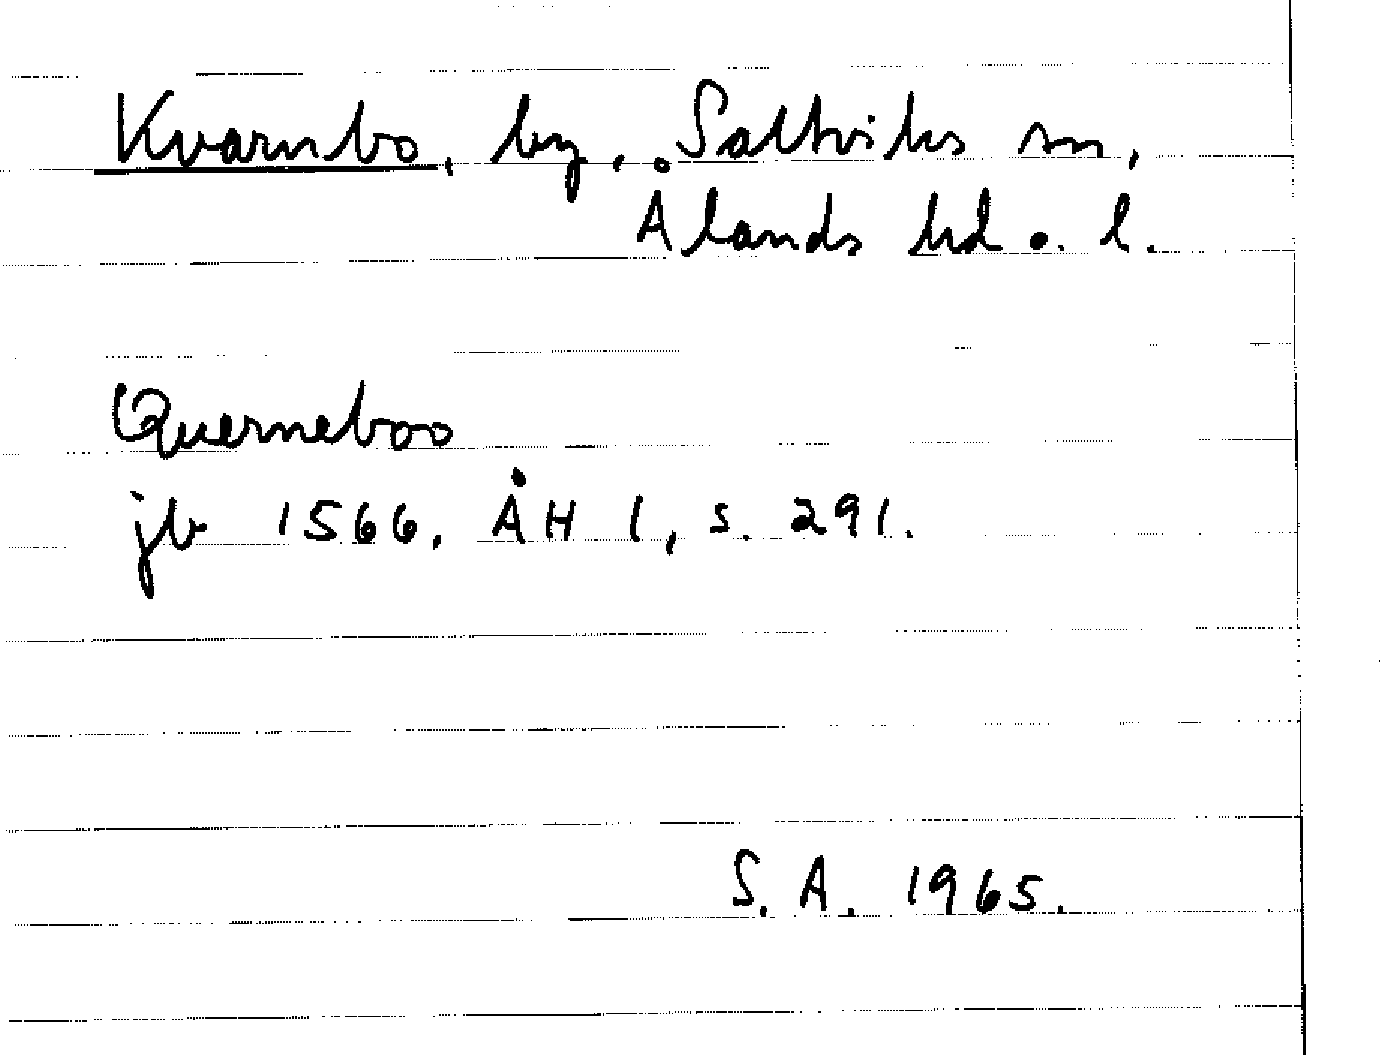 Kvarnbo, by, Saltviks sn,
Ålands hd o. l.
Querneboo
jb 1566. ÅH 1, s. 291.
S. A. 1965.